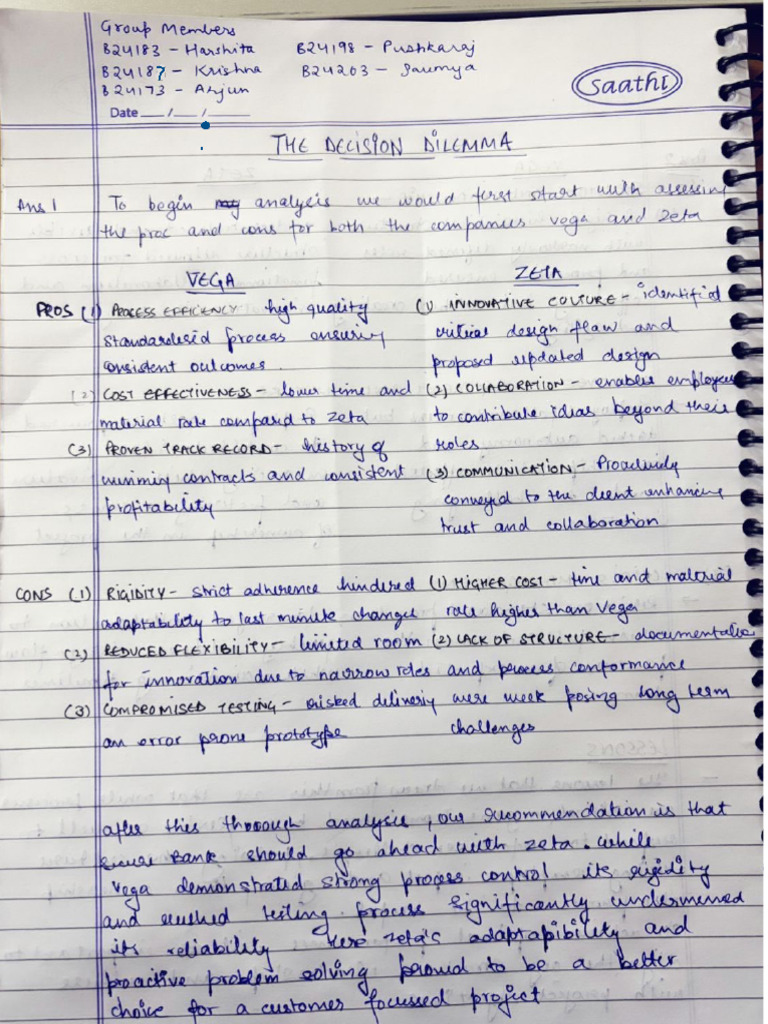 Group Members
B24183 - Harshita B24198 - Pushkaraj
B24187 - Krishna B24203 - Saumya
B24173 - Arjun
saathi
Date __/__/__
THE DECISION DILEMMA
Ans 1 To begin analysis we would first start with assessing
the pros and cons for both the companies vega and zeta
VEGA
PROS (1) PROCESS EFFICIENCY high quality
standardised process ensuring
consistent outcomes.
(2) COST EFFECTIVENESS - lower time and
material rate compard to zeta
(3) PROVEN TRACK RECORD - history of
winning contracts and consistent
profitability
ZETA
(1) INNOVATIVE CULTURE - identified
critical design flaw and
proposed updated design
(2) COLLABORATION - enables employees
to contribute ideas beyond their
roles
(3) COMMUNICATION - Proactively
conveyed to the client enhancing
trust and collaboration
CONS (1) RIGIDITY - strict adherence hindered
adaptability to last minute changes
(2) REDUCED FLEXIBILITY - limited room
for innovation due to narrow roles
(3) COMPROMISED TESTING - risked delivering
an error prone prototype
(1) HIGHER COST - time and material
rate higher than vega
(2) LACK OF STRUCTURE - documentation
and process conformance
were week posing long term
challenges
after this thorough analysis, our recommendation is that
Bank should go ahead with zeta. while
vega demonstrated strong process control its rigidity
and rushed testing process significantly undermined
its reliability Here zeta's adaptapibility and
proactive problem solving proved to be a better
choice for a customer focussed project